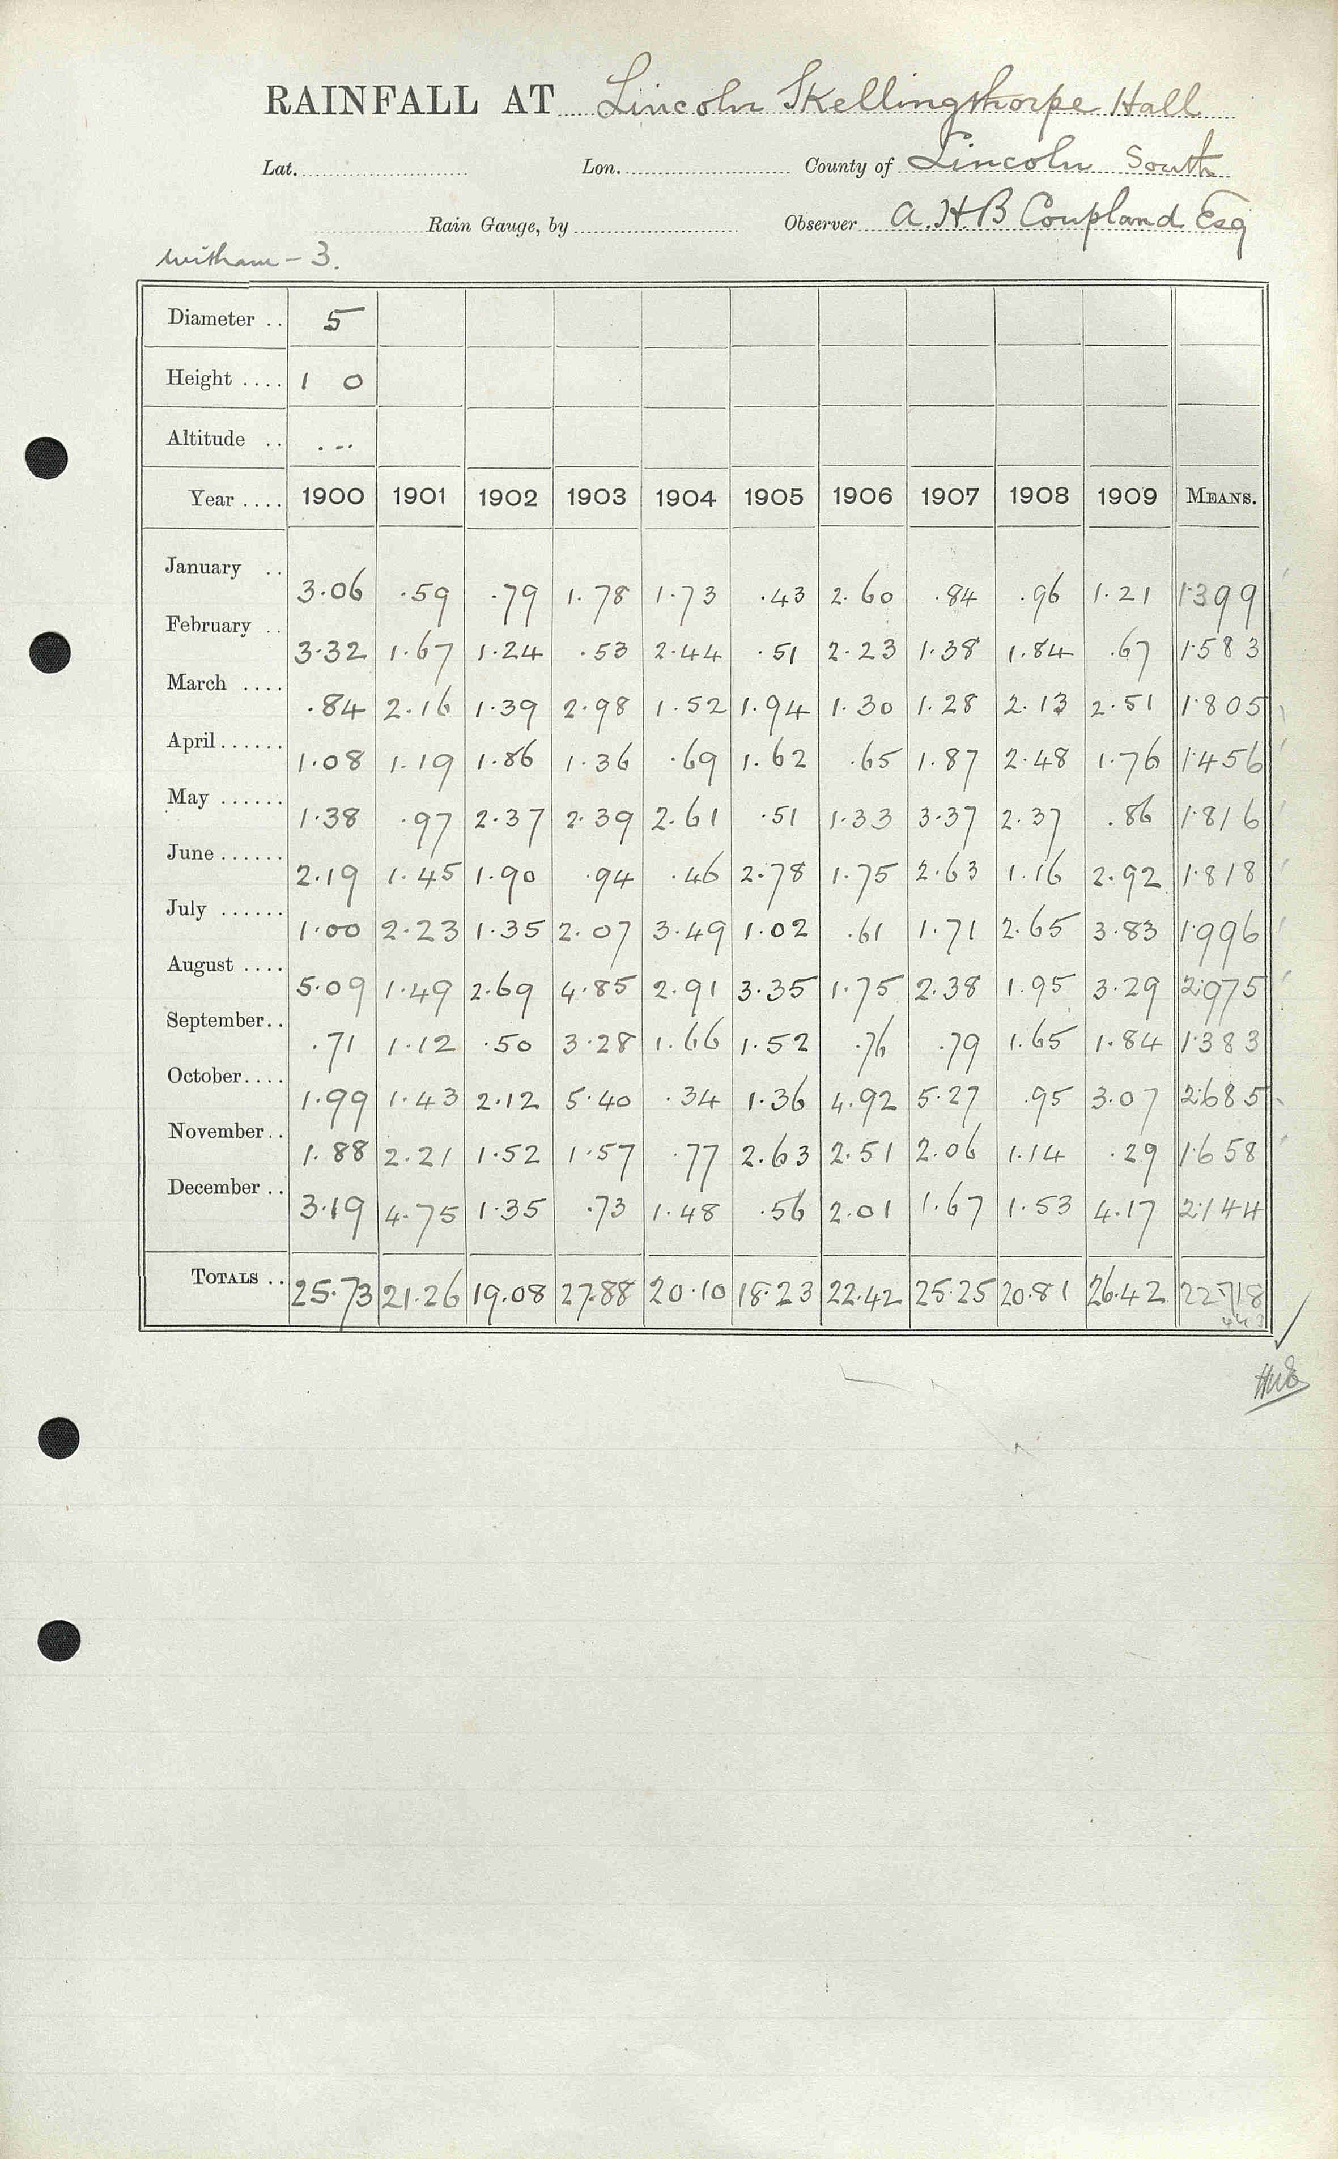 RAINFALL AT Lincoln Skellingthorpe Hall
Lat. Lon. County of Lincoln South
Rain Gauge, by Observer A.H.B Coupland Esq
Witham - 3.
Diameter .. 5
Height .... 1 0
Altitude .. . --
Year .... 1900 1901 1902 1903 1904 1905 1906 1907 1908 1909 MEANS.
January .. 3.06 .59 .79 1.78 1.73 .43 2.60 .84 .96 1.21 1.399
February .. 3.32 1.67 1.24 .53 2.44 .51 2.23 1.38 1.84 .67 1.583
March .... .84 2.16 1.39 2.98 1.52 1.94 1.30 1.28 2.13 2.51 1.805
April ...... 1.08 1.19 1.86 1.36 .69 1.62 .65 1.87 2.48 1.76 1.456
May ...... 1.38 .97 2.37 2.39 2.61 .51 1.33 3.37 2.37 .86 1.816
June ...... 2.19 1.45 1.90 .94 .46 2.78 1.75 2.63 1.16 2.92 1.818
July ...... 1.00 2.23 1.35 2.07 3.49 1.02 .61 1.71 2.65 3.83 1.996
August .... 5.09 1.49 2.69 4.85 2.91 3.35 1.75 2.38 1.95 3.29 2.975
September.. .71 1.12 .50 3.28 1.66 1.52 .76 .79 1.65 1.84 1.383
October.... 1.99 1.43 2.12 5.40 .34 1.36 4.92 5.27 .95 3.07 2.685
November.. 1.88 2.21 1.52 1.57 .77 2.63 2.51 2.06 1.14 .29 1.658
December .. 3.19 4.75 1.35 .73 1.48 .56 2.01 1.67 1.53 4.17 2.144
TOTALS .. 25.73 21.26 19.08 27.88 20.10 18.23 22.42 25.25 20.81 26.42 22.718